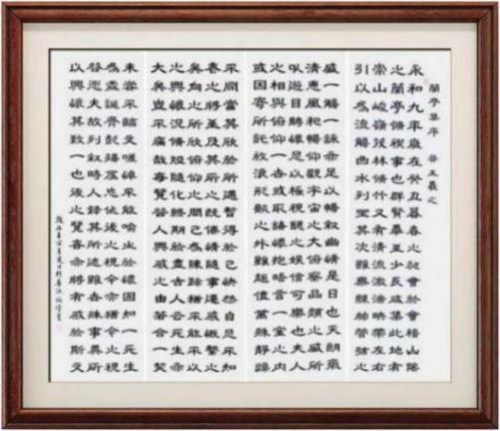 蘭亭集序 晉王羲之
永和九年歲在癸丑暮春之初會於會稽山陰
之蘭亭脩禊事也群賢畢至少長咸集此地有
崇山峻嶺茂林脩竹又有清流激湍映帶左右
引以為流觴曲水列坐其次雖無絲竹管弦之
盛一觴一詠亦足以暢敘幽情是日也天朗氣
清惠風和暢仰觀宇宙之大俯察品類之盛所
以遊目騁懷足以極視聽之娛信可樂也夫人
之相與俯仰一世或取諸懷抱悟言一室之內
或因寄所託放浪形骸之外雖趣舍萬殊靜躁
不同當其欣於所遇暫得於己快然自足不知
老之將至及其所之既倦情隨事遷感慨係之
矣向之所欣俛仰之間已為陳跡猶不能不以
之興懷況脩短隨化終期於盡古人云死生亦
大矣豈不痛哉每覽昔人興感之由若合一契
未嘗不臨文嗟悼不能喻之於懷固知一死生
為虛誕齊彭殤為妄作後之視今亦猶今之視
昔悲夫故列敘時人錄其所述雖世殊事異所
以興懷其致一也後之覽者亦將有感於斯文